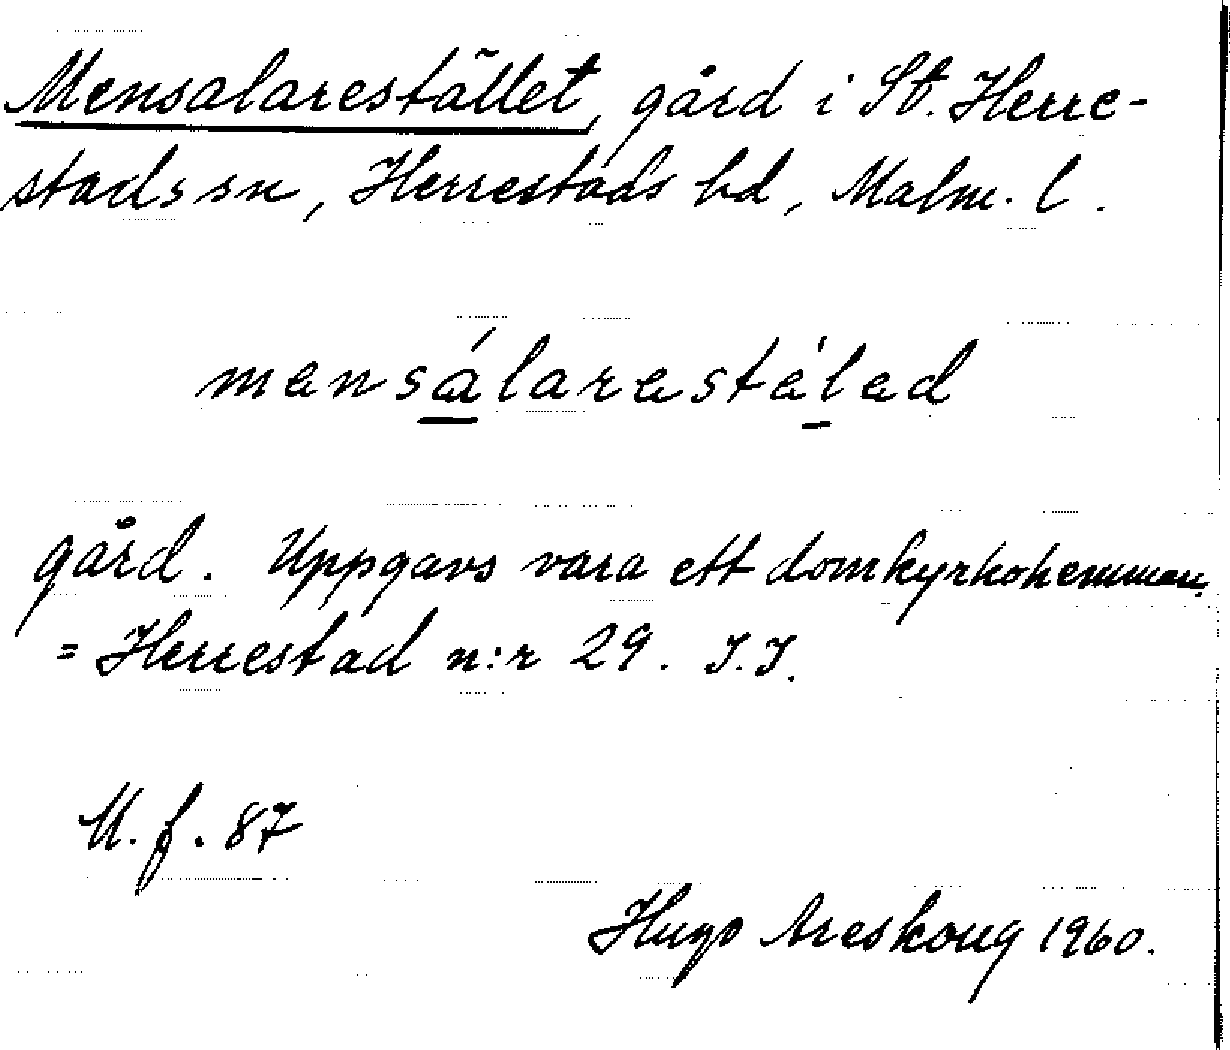 Mensalarestället, gård i St. Herre-
stads sn, Herrestads hd, Malm. l.
mensálarestélad
gård. Uppgavs vara ett domkyrkohemman.
= Herrestad n:r 29. J.J.
U. f. 87
Hugo Areskoug 1960.